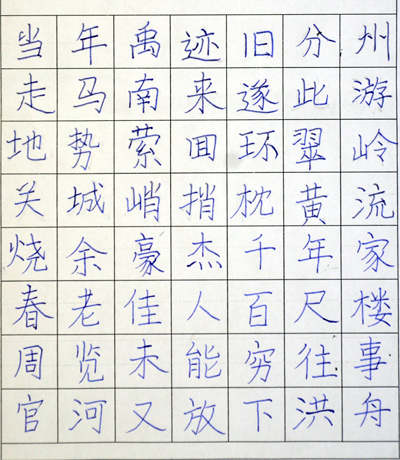 当年禹迹旧分州
走马南来遂此游
地势萦回环翠岭
关城峭捎枕黄流
烧余豪杰千年家
春老佳人百尺楼
周览未能穷往事
官河又放下洪舟